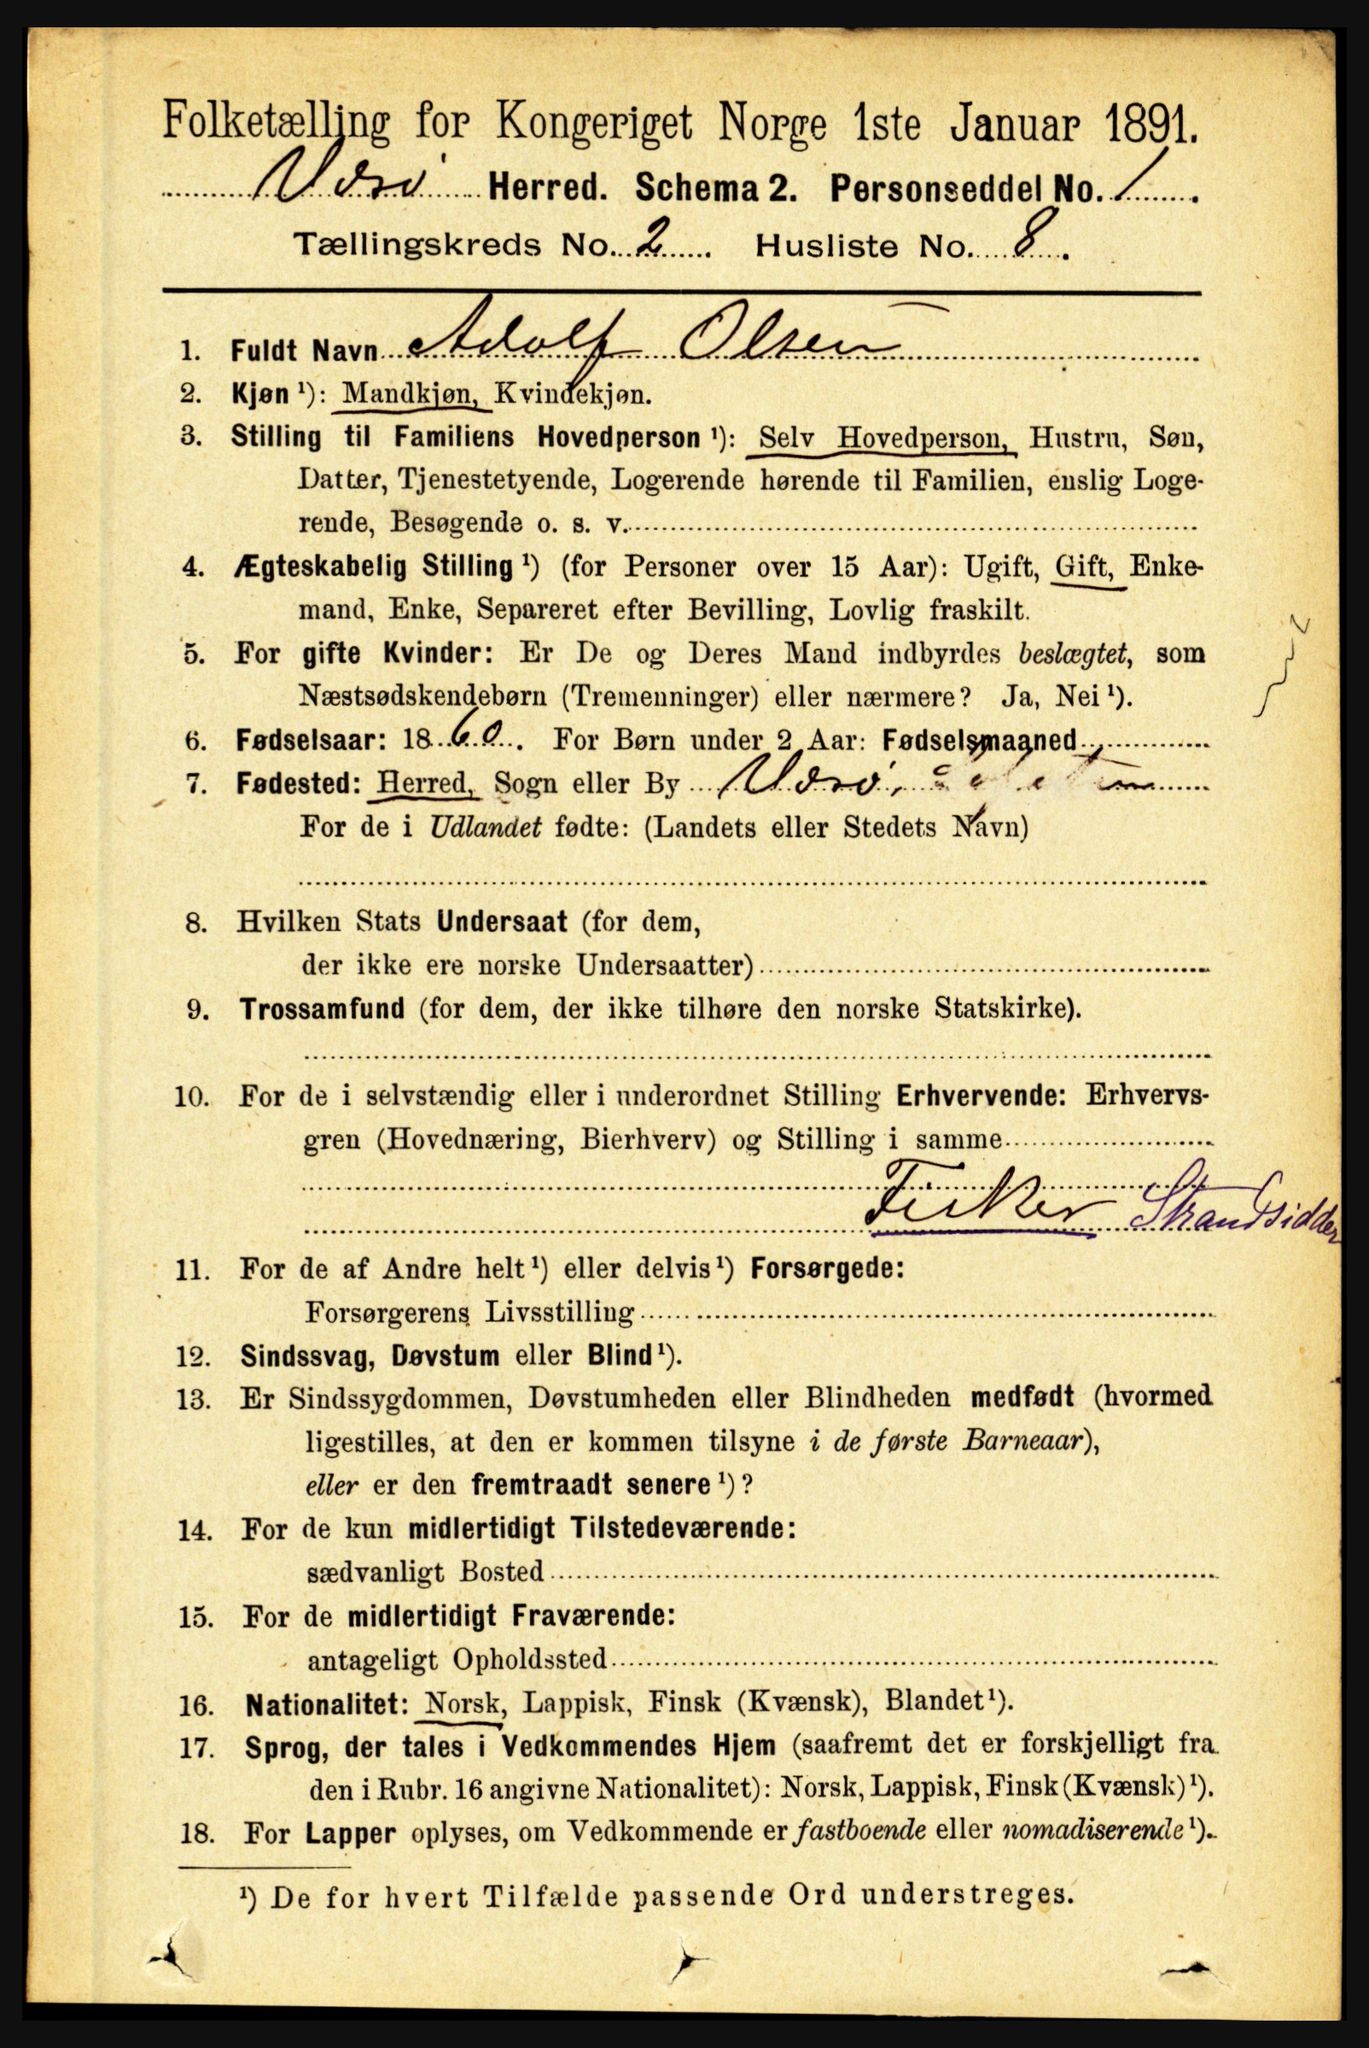 Folketælling for Kongeriget Norge 1ste Januar 1891.
Værø Herred. Schema 2. Personseddel No. 1.
Tællingskreds No. 2. Husliste No. 8.
1. Fuldt Navn Adolf Olsen
2. Kjøn ¹): Mandkjøn, Kvindekjøn.
3. Stilling til Familiens Hovedperson ¹): Selv Hovedperson, Hustru, Søn,
Datter, Tjenestetyende, Logerende hørende til Familien, enslig Loge-
rende, Besøgende o. s. v.
4. Ægteskabelig Stilling ¹) (for Personer over 15 Aar): Ugift, Gift, Enke-
mand, Enke, Separeret efter Bevilling, Lovlig fraskilt.
5. For gifte Kvinder: Er De og Deres Mand indbyrdes beslægtet, som
Næstsødskendebørn (Tremenninger) eller nærmere? Ja, Nei ¹).
6. Fødselsaar: 1860. For Børn under 2 Aar: Fødselsmaaned
7. Fødested: Herred, Sogn eller By Værø,
For de i Udlandet fødte: (Landets eller Stedets Navn)
8. Hvilken Stats Undersaat (for dem,
der ikke ere norske Undersaatter)
9. Trossamfund (for dem, der ikke tilhøre den norske Statskirke).
10. For de i selvstændig eller i underordnet Stilling Erhvervende: Erhvervs-
gren (Hovednæring, Bierhverv) og Stilling i samme
Fisker Strandsidder
11. For de af Andre helt ¹) eller delvis ¹) Forsørgede:
Forsørgerens Livsstilling
12. Sindssvag, Døvstum eller Blind ¹).
13. Er Sindssygdommen, Døvstumheden eller Blindheden medfødt (hvormed
ligestilles, at den er kommen tilsyne i de første Barneaar),
eller er den fremtraadt senere ¹)?
14. For de kun midlertidigt Tilstedeværende:
sædvanligt Bosted
15. For de midlertidigt Fraværende:
antageligt Opholdssted
16. Nationalitet: Norsk, Lappisk, Finsk (Kvænsk), Blandet ¹).
17. Sprog, der tales i Vedkommendes Hjem (saafremt det er forskjelligt fra
den i Rubr. 16 angivne Nationalitet): Norsk, Lappisk, Finsk (Kvænsk) ¹).
18. For Lapper oplyses, om Vedkommende er fastboende eller nomadiserende ¹).
¹) De for hvert Tilfælde passende Ord understreges.